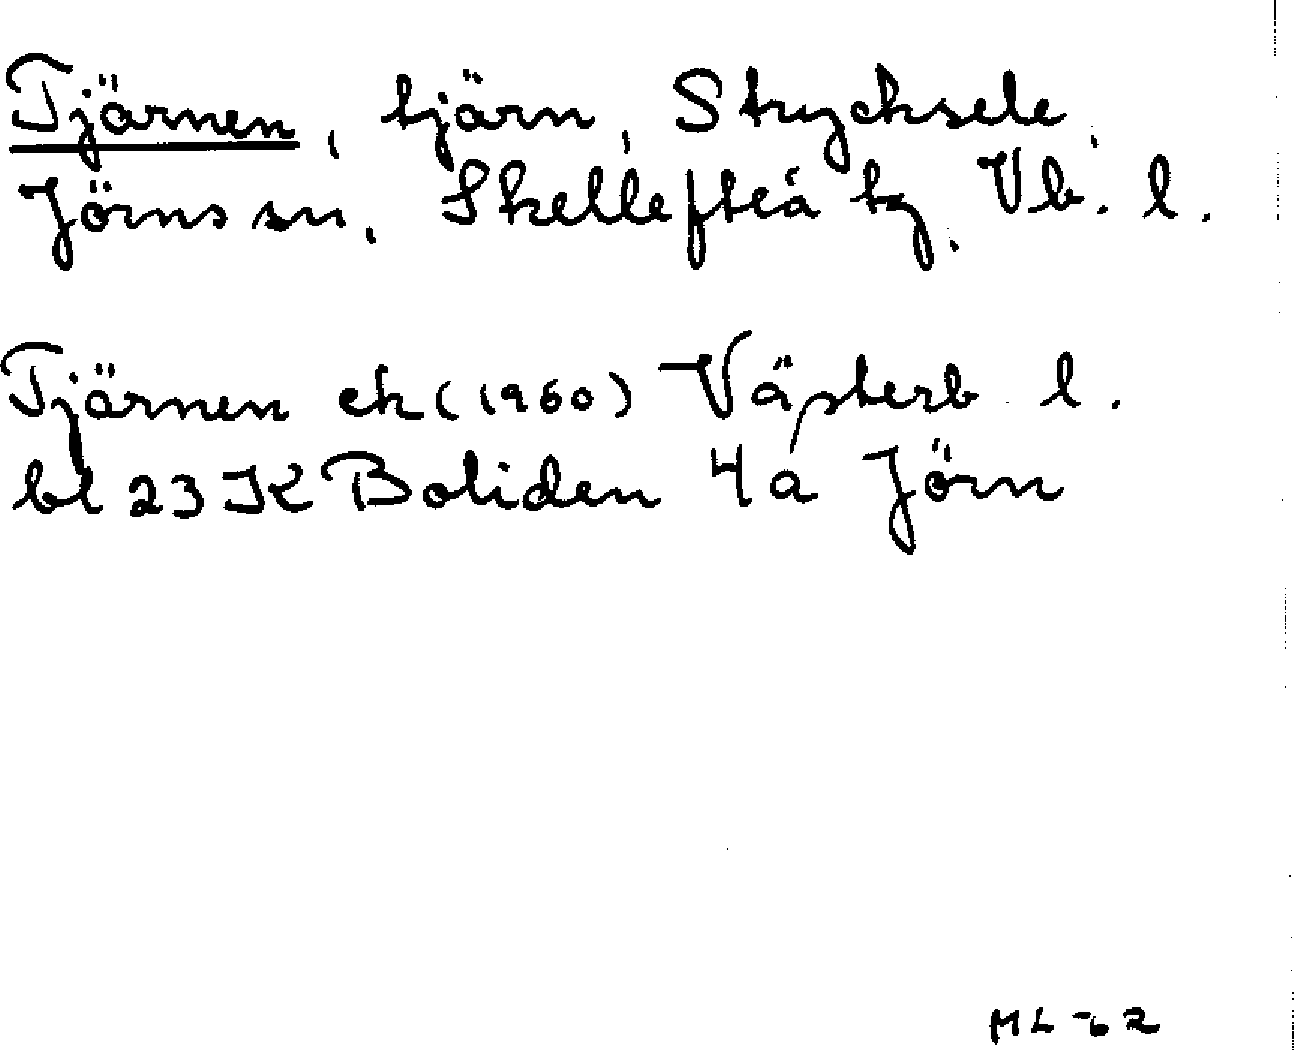 Tjärnen, tjärn, Strycksele,
Jörns sn, Skellefteå tg, Vb. l.
Tjärnen ek (1960) Västerb l.
bl 23 K Boliden 4a Jörn
ML -62